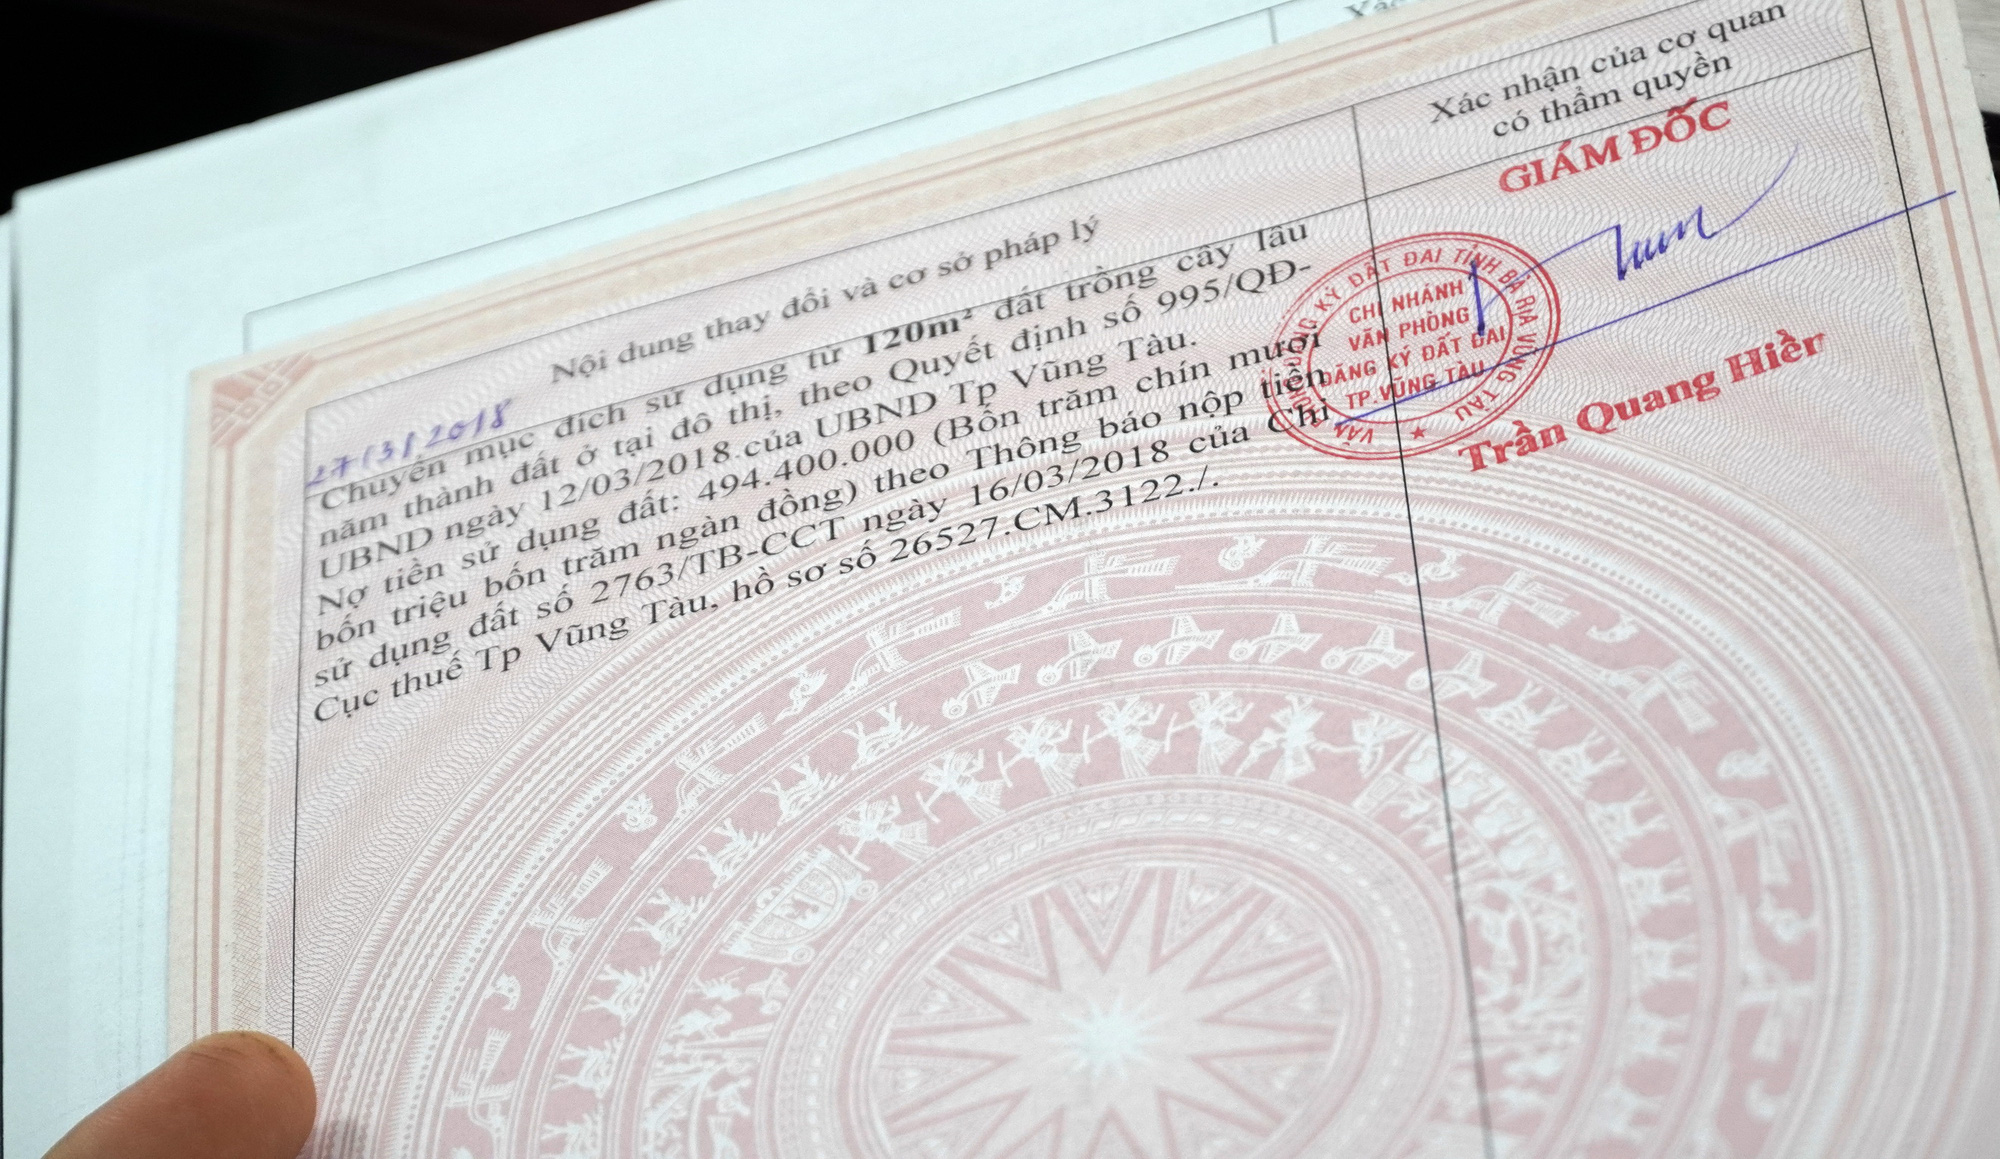 Nội dung thay đổi và cơ sở pháp lý
Xác nhận của cơ quan
có thẩm quyền
27/3/2018
Chuyển mục đích sử dụng từ 120m² đất trồng cây lâu
năm thành đất ở tại đô thị, theo Quyết định số 995/QĐ-
UBND ngày 12/03/2018.của UBND Tp Vũng Tàu.
Nợ tiền sử dụng đất: 494.400.000 (Bốn trăm chín mươi
bốn triệu bốn trăm ngàn đồng) theo Thông báo nộp tiền
sử dụng đất số 2763/TB-CCT ngày 16/03/2018 của Chi
Cục thuế Tp Vũng Tàu, hồ sơ số 26527.CM.3122./.
GIÁM ĐỐC
VĂN PHÒNG ĐĂNG KÝ ĐẤT ĐAI TỈNH BÀ RỊA VŨNG TÀU
CHI NHÁNH
VĂN PHÒNG
ĐĂNG KÝ ĐẤT ĐAI
TP.VŨNG TÀU
Trần Quang Hiền